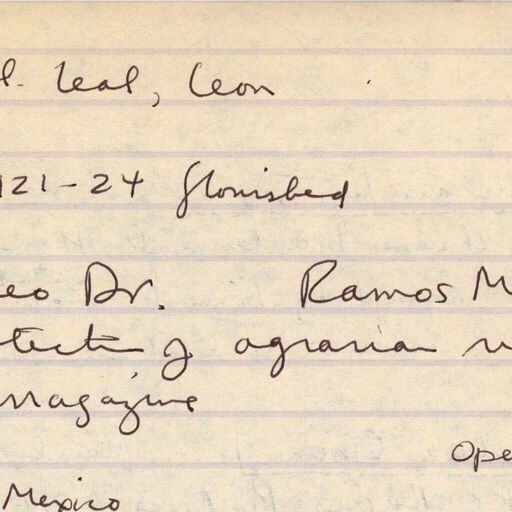 l. Leal, Leon
121-24 flourished
eo Dr. Ramos M
tect of agrarian
magazine
Ope
Mexico